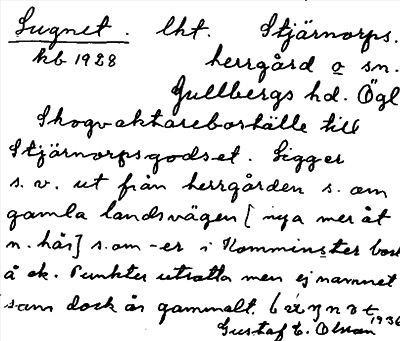 Sugnet. lht. Stjärnorps.
kb 1928 herrgård o sn.
Gullbergs hd. Ögl
Skogvaktareboställe till
Stjärnorpsgodset. Ligger
s.v. ut från herrgården s. om
gamla landsvägen [nya mer åt
n. hår] s.om -er i Komminster bost
å ek. Punkten utsatta men ej namnet
som dock är gammalt.
Gustaf E. Olsson 1936